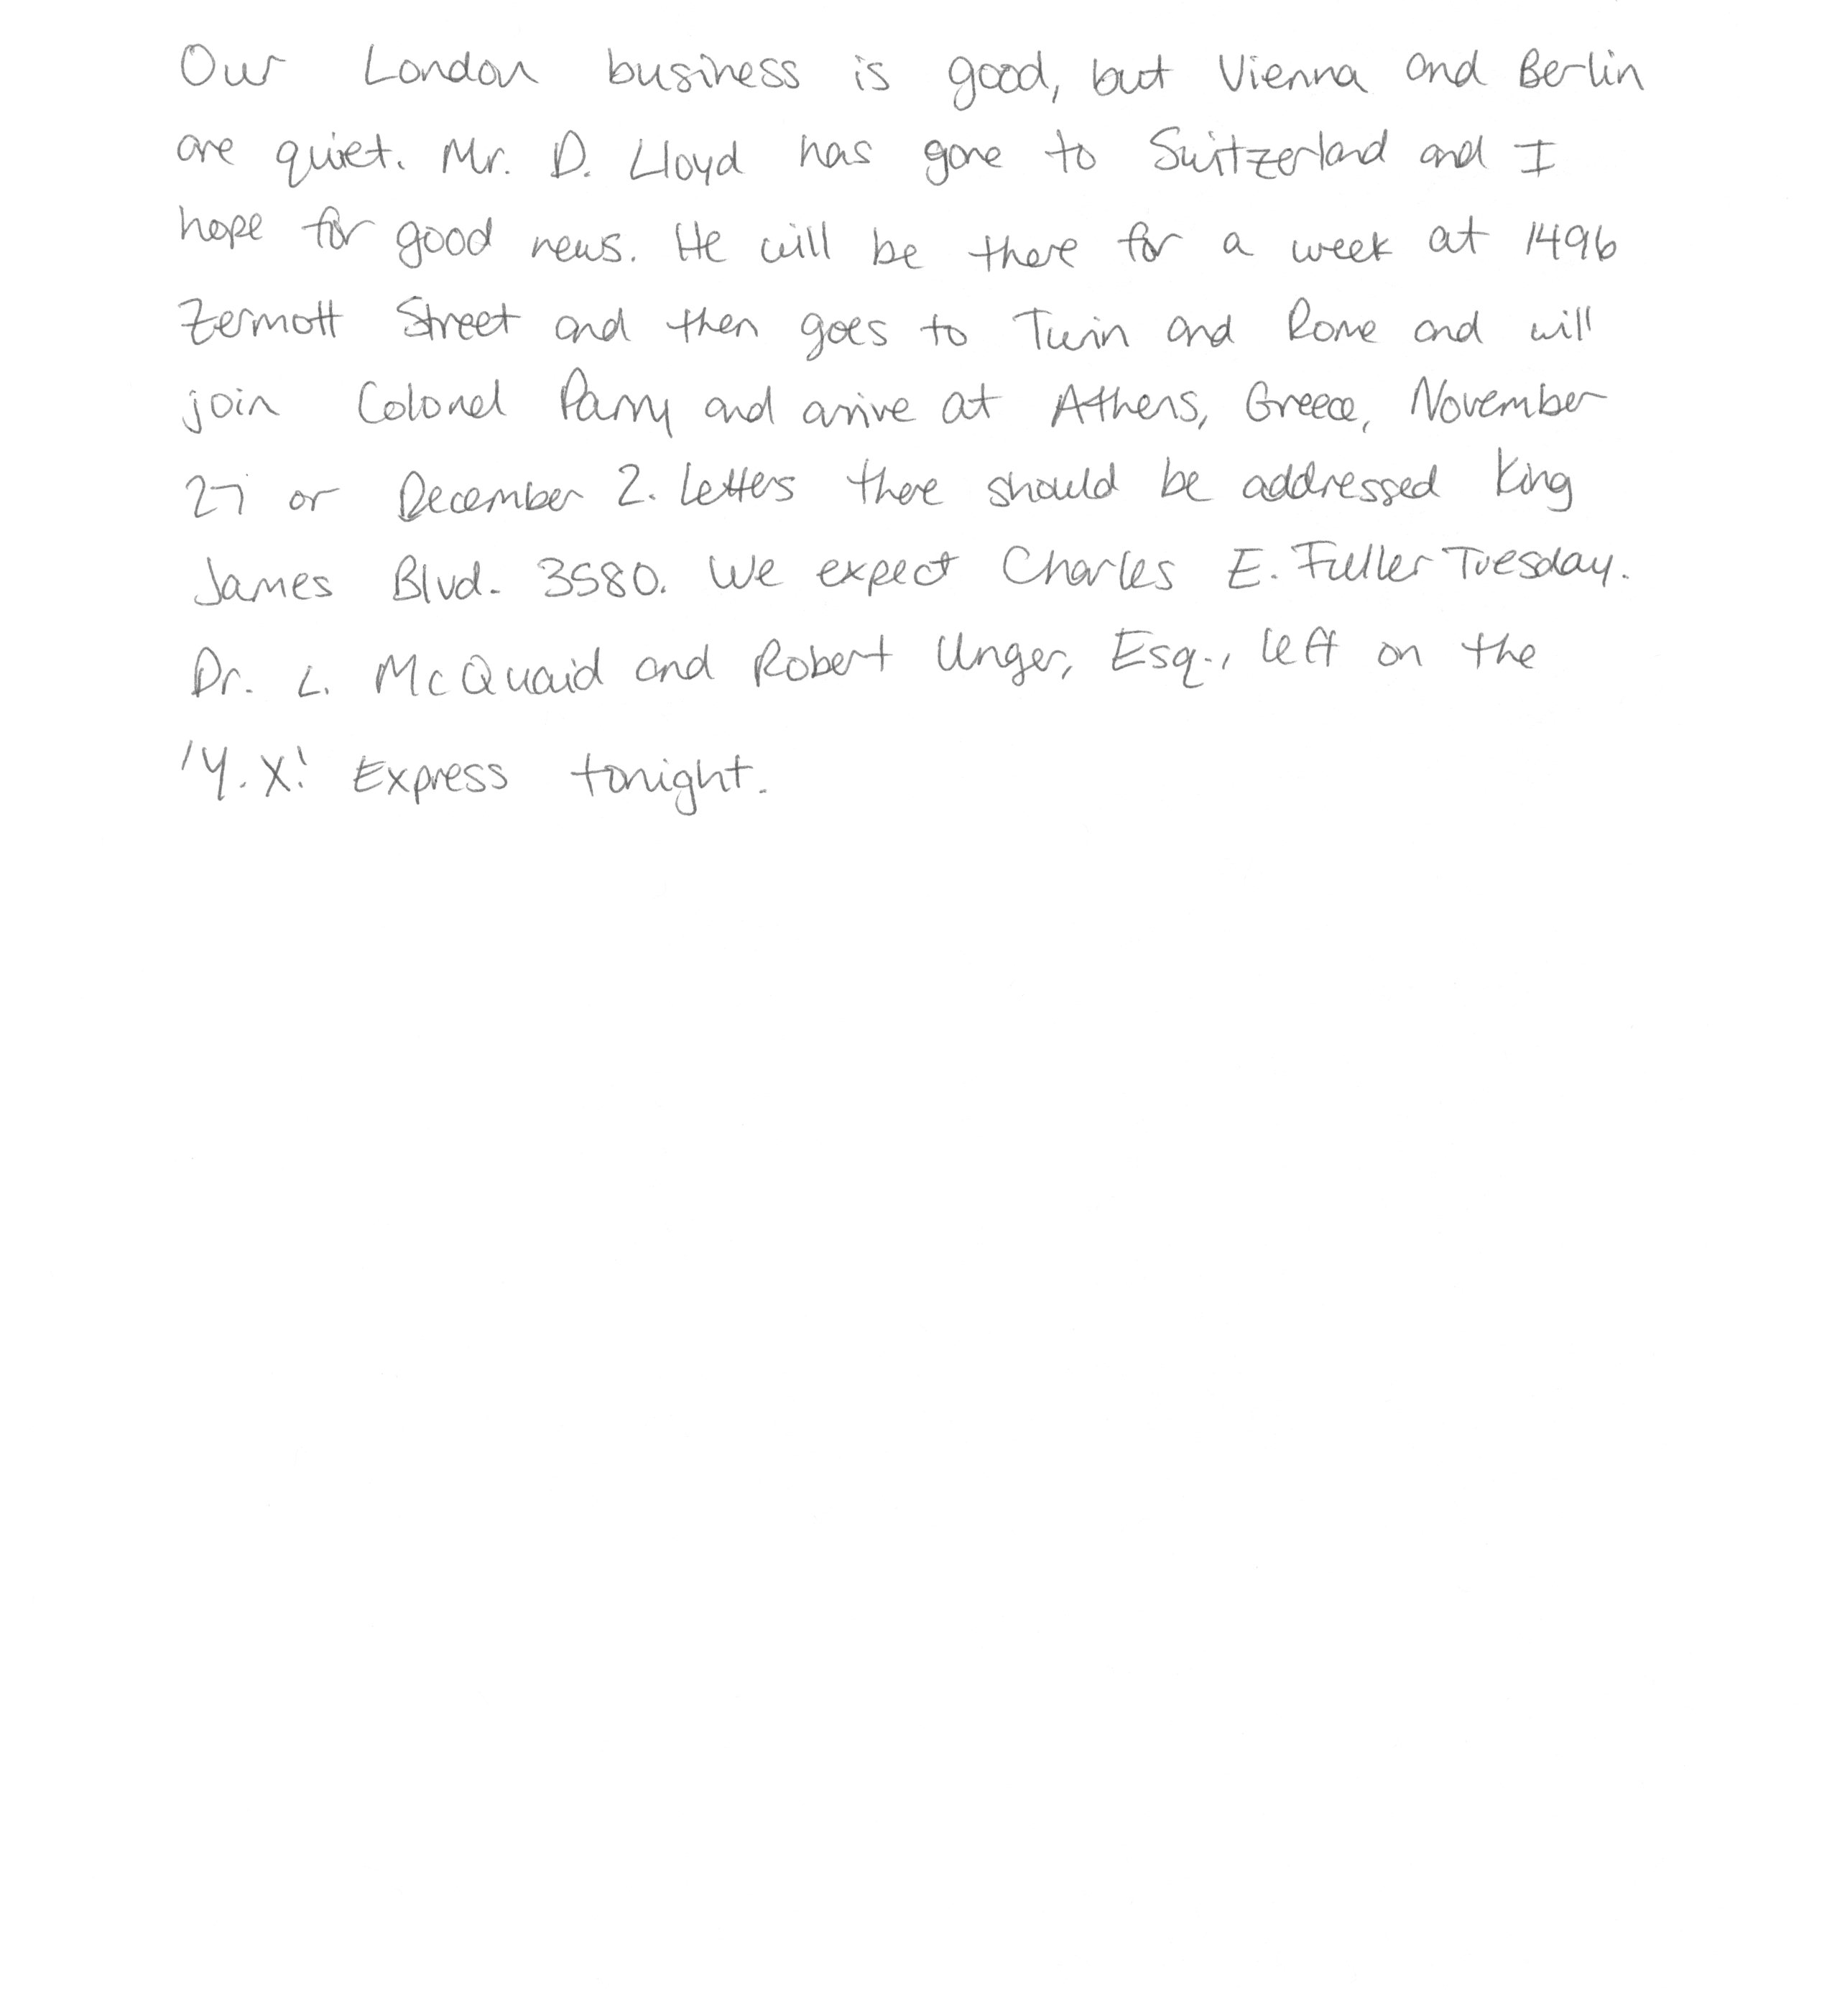 Our London business is good, but Vienna and Berlin
are quiet. Mr. D. Lloyd has gone to Switzerland and I
hope for good news. He will be there for a week at 1496
Zermott Street and then goes to Turin and Rome and will
join Colonel Parry and arrive at Athens, Greece, November
27 or December 2. Letters there should be addressed King
James Blvd. 3580. We expect Charles E. Fuller Tuesday.
Dr. L. McQuaid and Robert Unger, Esq., left on the
'Y.X.' Express tonight.